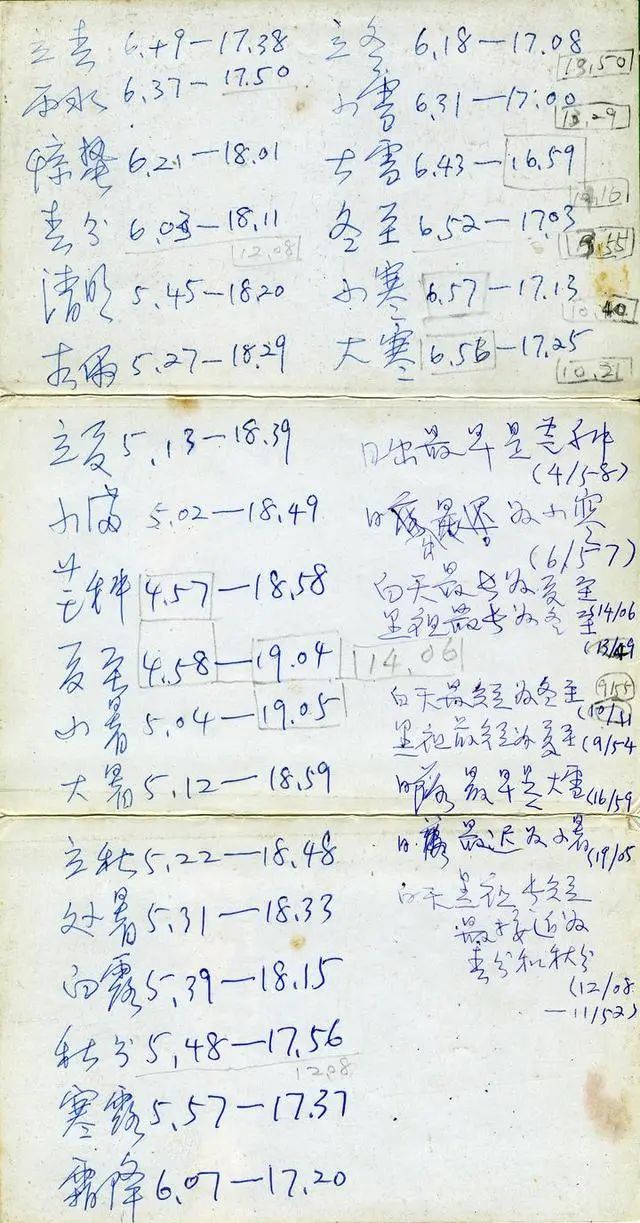 立春 6.49—17.38
雨水 6.37—17.50
惊蛰 6.21—18.01
春分 6.03—18.11
12.08
清明 5.45—18.20
谷雨 5.27—18.29
立冬 6.18—17.08
13.50
小雪 6.31—17.00
13.29
大雪 6.43—16.59
冬至 6.52—17.03
小寒 6.57—17.13
10.40
大寒 6.56—17.25
10.21
立夏 5.13—18.39
小满 5.02—18.49
芒种 4.57—18.58
夏至 4.58—19.04 14.06
小暑 5.04—19.05
大暑 5.12—18.59
立秋 5.22—18.48
处暑 5.31—18.33
白露 5.39—18.15
秋分 5.48—17.56
12.08
寒露 5.57—17.37
霜降 6.07—17.20
日出最早是芒种
(4/58)
日出最迟为小寒
(6/57)
白天最长为夏至
(14/06
黑夜最长为冬至
白天最短为冬至
9/55
(10/11
黑夜最短为夏至
(9/54
日落最早是大雪
(16/59
日落最迟为小暑
(19/05
白天黑夜长短
最接近为
春分和秋分
(12/08
—11/52)